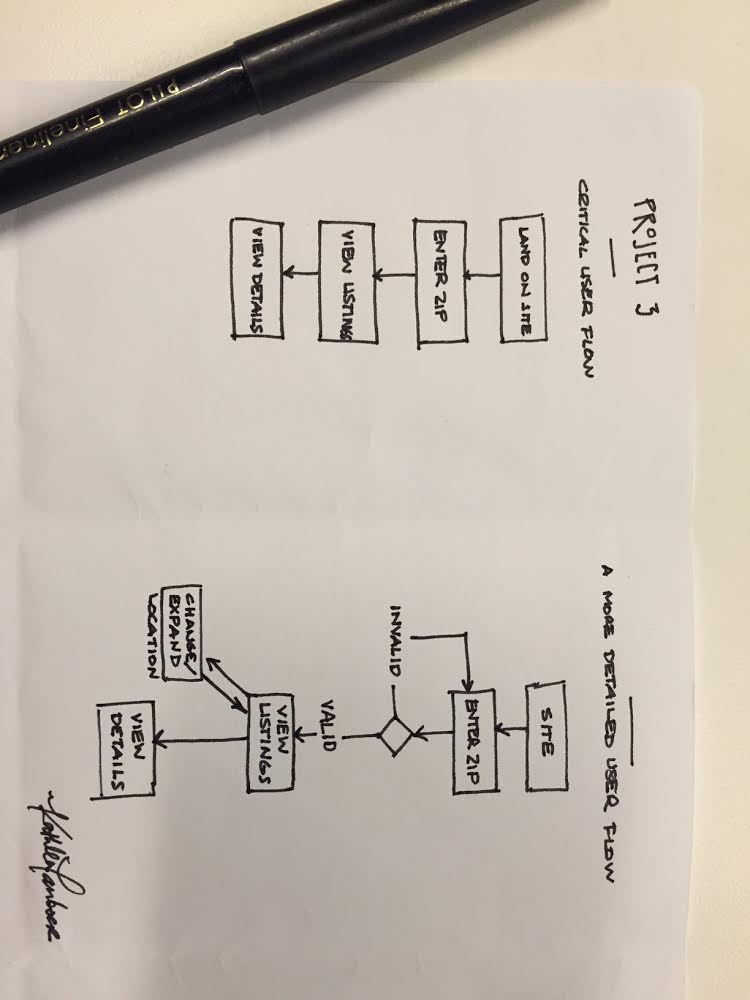 PILOT Fineliner
PROJECT 3
CRITICAL USER FLOW
LAND ON SITE
ENTER ZIP
VIEW LISTINGS
VIEW DETAILS
A MORE DETAILED USER FLOW
SITE
ENTER ZIP
INVALID
VALID
VIEW
LISTINGS
CHANGE/
EXPAND
LOCATION
VIEW
DETAILS